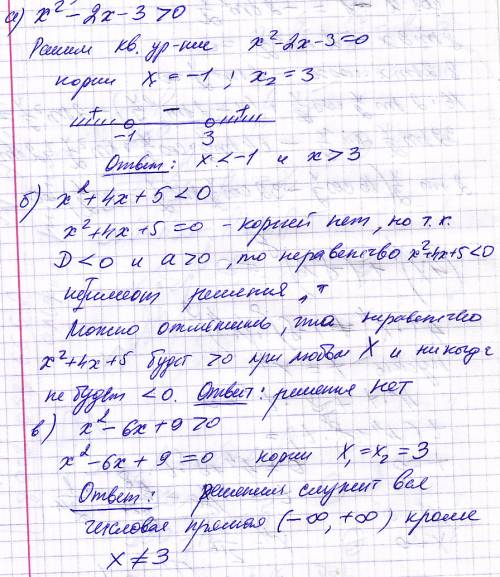 а) x² - 2x - 3 > 0
Решим кв. ур-ние x² - 2x - 3 = 0
корни x₁ = -1 ; x₂ = 3
+ - +
-1 3
Ответ: x < -1 и x > 3
б) x² + 4x + 5 < 0
x² + 4x + 5 = 0 - корней нет, но т.к.
D < 0 и a > 0, то неравенство x² + 4x + 5 < 0
не имеет решения,
Можно отметить, что неравенство
x² + 4x + 5 будет > 0 при любом X и никогда
не будет < 0. Ответ: решения нет
в) x² - 6x + 9 > 0
x² - 6x + 9 = 0 корни x₁ = x₂ = 3
Ответ: решения служит вся
числовая прямая (-∞, +∞) кроме
X ≠ 3